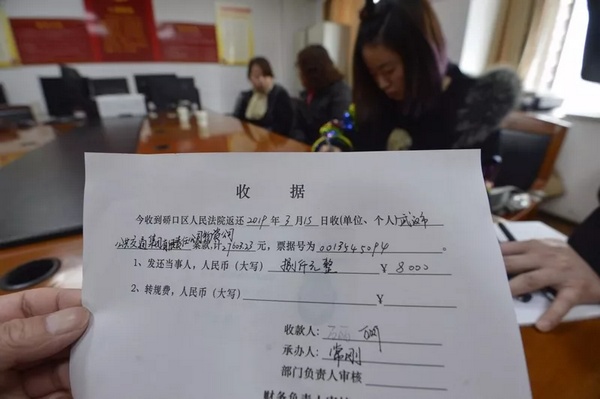 收 据
今收到硚口区人民法院返还2019年3月15日收(单位、个人)武汉市
公司案款,计2760323元,票据号为0013545094
1、发还当事人,人民币(大写)捌仟元整 ¥8000
2、转规费,人民币(大写) ¥
收款人:
承办人:常刚
部门负责人审核
财务负责人审核